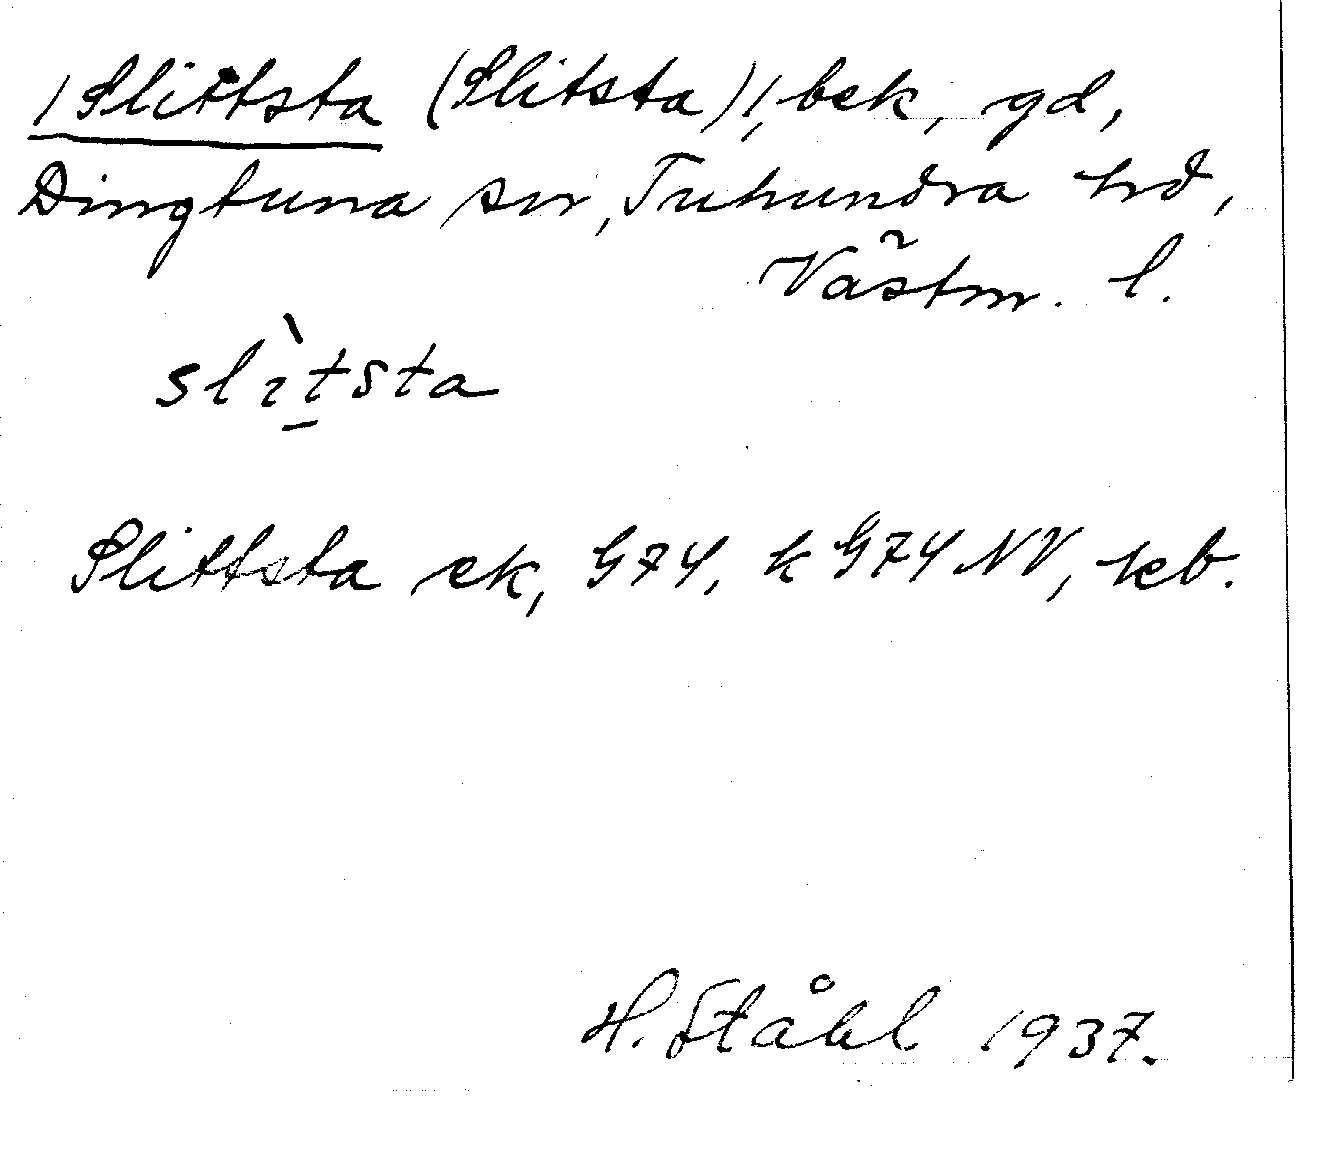 /Slittsta (Slitsta)/, bek, gd,
Dingtuna sn, Tuhundra hd,
Västm. l.
slìt̲sta
Slittsta ek, G74, k G74 NV, keb.
H. Ståhl 1937.